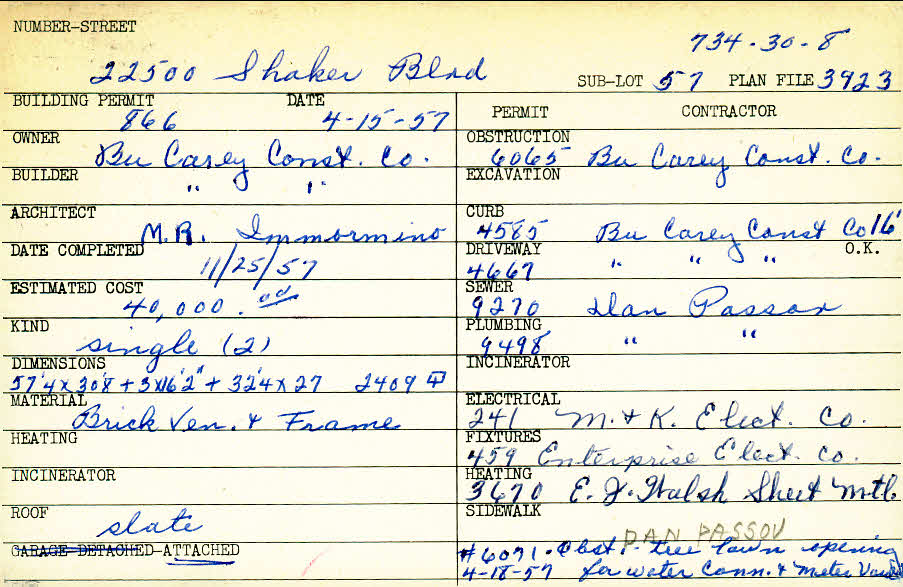 NUMBER-STREET
734-30-8
22500 Shaker Blvd
SUB-LOT 57 PLAN FILE 3923
BUILDING PERMIT DATE
866 4-15-57
OWNER
Bu Carey Const. Co.
BUILDER
" "
ARCHITECT
M.R. Immormino
DATE COMPLETED
11/25/57
ESTIMATED COST
40,000.00
KIND
single (2)
DIMENSIONS
57'4 x 30'8 + 3x16'2" + 32'4 x 27 2409
MATERIAL
Brick Ven. & Frame
HEATING
INCINERATOR
ROOF
slate
GARAGE-DETACHED-ATTACHED
PERMIT CONTRACTOR
OBSTRUCTION
6065 Bu Carey Const. Co.
EXCAVATION
CURB
4585 Bu Carey Const Co 16'
DRIVEWAY O.K.
4667 " " "
SEWER
9270 Dan Passov
PLUMBING
9498 " "
INCINERATOR
ELECTRICAL
241 M. & K. Elect. Co.
FIXTURES
459 Enterprise Elect. Co.
HEATING
3670 E. J. Walsh Sheet Mtl.
SIDEWALK
DAN PASSOV
#6071 - Obst. - tree lawn opening
4-18-57 for water Conn. & Meter Vault